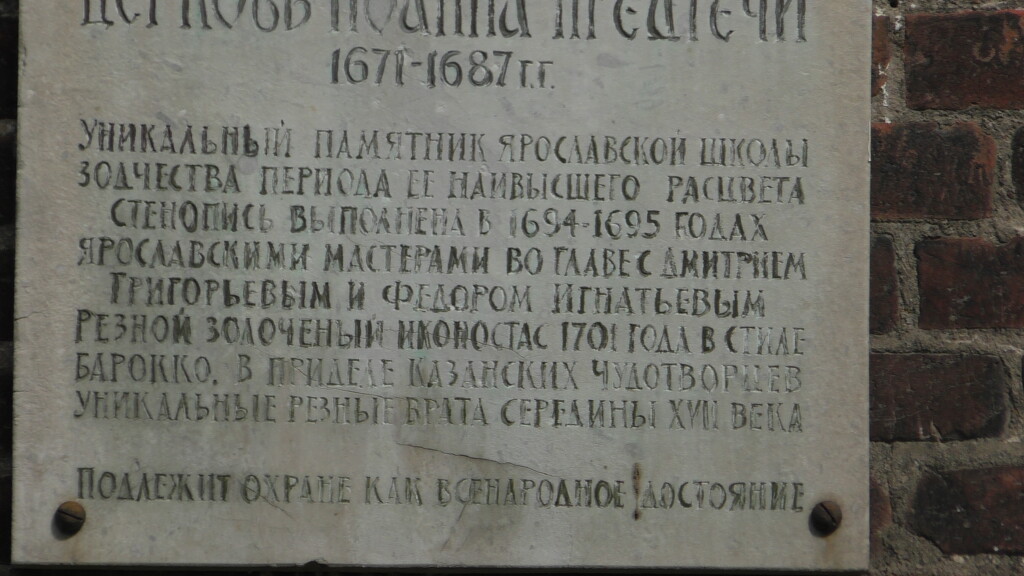 ЦЕРКОВЬ ИОАННА ПРЕДТЕЧИ
1671-1687 Г.Г.
УНИКАЛЬНЫЙ ПАМЯТНИК ЯРОСЛАВСКОЙ ШКОЛЫ
ЗОДЧЕСТВА ПЕРИОДА ЕЕ НАИВЫСШЕГО РАСЦВЕТА
СТЕНОПИСЬ ВЫПОЛНЕНА В 1694-1695 ГОДАХ
ЯРОСЛАВСКИМИ МАСТЕРАМИ ВО ГЛАВЕ С ДМИТРИЕМ
ГРИГОРЬЕВЫМ И ФЕДОРОМ ИГНАТЬЕВЫМ
РЕЗНОЙ ЗОЛОЧЕНЫЙ ИКОНОСТАС 1701 ГОДА В СТИЛЕ
БАРОККО. В ПРИДЕЛЕ КАЗАНСКИХ ЧУДОТВОРЦЕВ
УНИКАЛЬНЫЕ РЕЗНЫЕ ВРАТА СЕРЕДИНЫ XVII ВЕКА
ПОДЛЕЖИТ ОХРАНЕ КАК ВСЕНАРОДНОЕ ДОСТОЯНИЕ